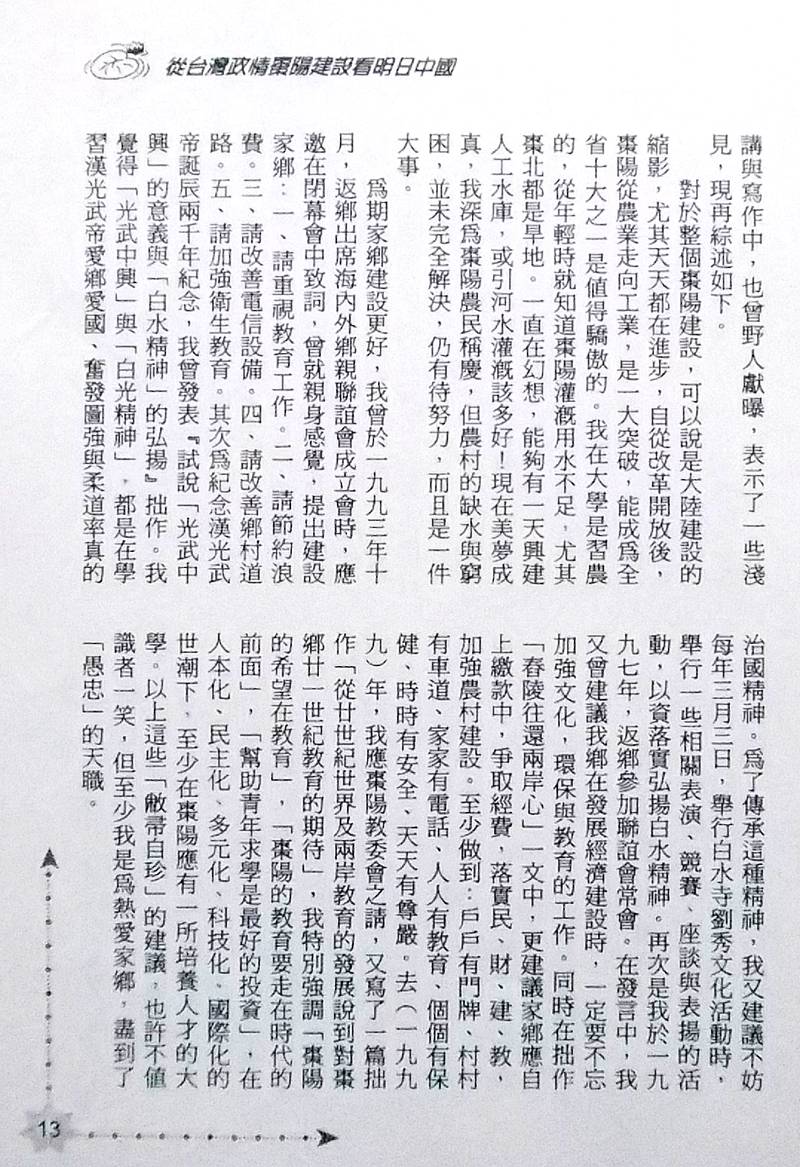 從台灣政情棗陽建設看明日中國
講與寫作中，也曾野人獻曝，表示了一些淺
見，現再綜述如下。
對於整個棗陽建設，可以說是大陸建設的
縮影，尤其天天都在進步，自從改革開放後，
棗陽從農業走向工業，是一大突破，能成為全
省十大之一是值得驕傲的。我在大學是習農
的，從年輕時就知道棗陽灌溉用水不足，尤其
棗北都是旱地。一直在幻想，能夠有一天興建
人工水庫，或引河水灌溉該多好！現在美夢成
真，我深為棗陽農民稱慶，但農村的缺水與窮
困，並未完全解決，仍有待努力，而且是一件
大事。
為期家鄉建設更好，我曾於一九九三年十
月，返鄉出席海內外鄉親聯誼會成立會時，應
邀在閉幕會中致詞，曾就親身感覺，提出建設
家鄉：一、請重視教育工作。二、請節約浪
費。三、請改善電信設備。四、請改善鄉村道
路。五、請加強衛生教育。其次為紀念漢光武
帝誕辰兩千年紀念，我曾發表『試說「光武中
興」的意義與「白水精神」的弘揚』拙作。我
覺得「光武中興」與「白光精神」，都是在學
習漢光武帝愛鄉愛國、奮發圖強與柔道率真的
治國精神。為了傳承這種精神，我又建議不妨
每年三月三日，舉行白水寺劉秀文化活動時，
舉行一些相關表演、競賽、座談與表揚的活
動，以資落實弘揚白水精神。再次是我於一九
九七年，返鄉參加聯誼會常會。在發言中，我
又曾建議我鄉在發展經濟建設時，一定要不忘
加強文化，環保與教育的工作。同時在拙作
「舂陵往還兩岸心」一文中，更建議家鄉應自
上繳款中，爭取經費，落實民、財、建、教，
加強農村建設。至少做到：戶戶有門牌、村村
有車道、家家有電話、人人有教育、個個有保
健、時時有安全、天天有尊嚴。去（一九九
九）年，我應棗陽教委會之請，又寫了一篇拙
作「從廿世紀世界及兩岸教育的發展說到對棗
鄉廿一世紀教育的期待」，我特別強調「棗陽
的希望在教育」，「棗陽的教育要走在時代的
前面」，「幫助青年求學是最好的投資」，在
人本化、民主化、多元化、科技化、國際化的
世潮下，至少在棗陽應有一所培養人才的大
學。以上這些「敝帚自珍」的建議，也許不值
識者一笑，但至少我是為熱愛家鄉，盡到了
「愚忠」的天職。
13